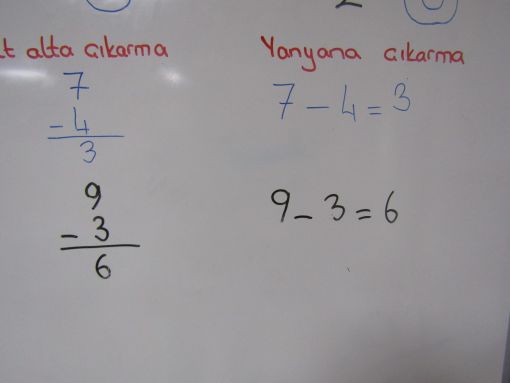 alta çıkarma
7
- 4
3
9
- 3
6
Yanyana çıkarma
7 - 4 = 3
9 - 3 = 6